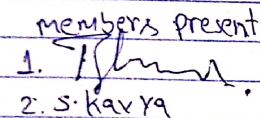 members present
1.
2. S. Kavya